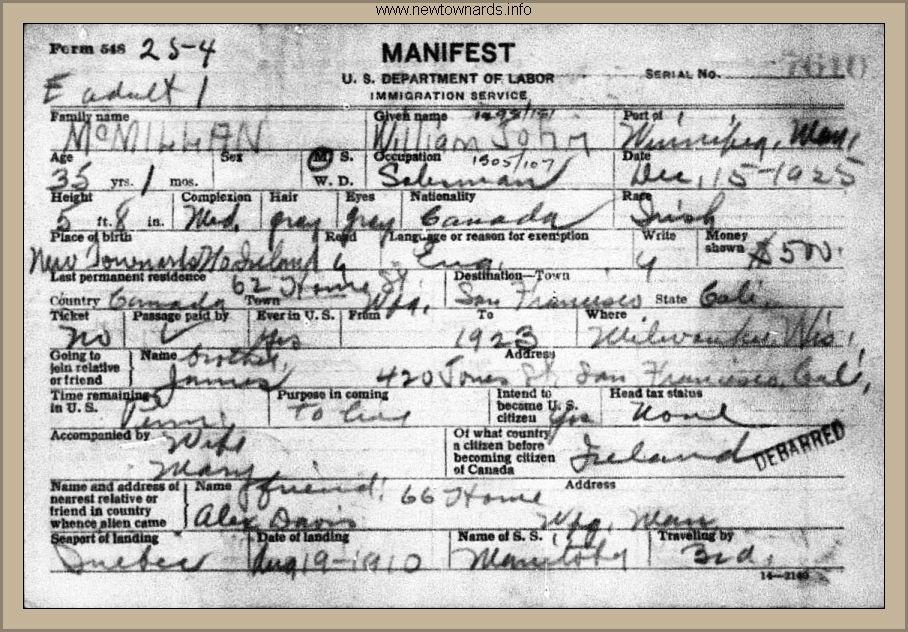 www.newtownards.info
Form 548 25-4
MANIFEST
U. S. DEPARTMENT OF LABOR
IMMIGRATION SERVICE
SERIAL No. 7610
E adult 1
Family name McMILLAN Given name William John Port of Winnipeg, Man.
Age 35 yrs. 1 mos. Sex M S. W. D. Occupation Salesman Date Dec, 15-1925
Height 5 ft. 8 in. Complexion Med. Hair gray Eyes gray Nationality Canada Race Irish
Place of birth New Townards No Ireland Read y Language or reason for exemption Eng. Write y Money shown $500.
Last permanent residence Country Canada 62 Home St. Town Wpg. Destination—Town San Francisco State Cali.
Ticket No Passage paid by Ever in U.S. Yes From To 1923 Where Milwaukee, Wis.
Going to join relative or friend Name brother, James Address 420 Jones St. San Francisco, Cal,
Time remaining in U.S. Perm. Purpose in coming to live Intend to become U.S. citizen Yes Head tax status None
Accompanied by Wife Mary Of what country a citizen before becoming citizen of Canada Ireland DEBARRED
Name and address of nearest relative or friend in country whence alien came Name friend, Alex Davis Address 66 Home Wpg, Man
Seaport of landing Quebec Date of landing Aug 19-1910 Name of S. S. Manitoba Traveling by 3rd.